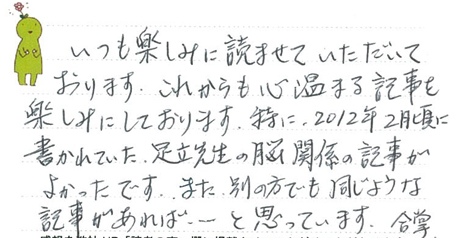 いつも楽しみに読ませていただいて
おります.これからも心温まる記事を
楽しみにしております.特に、2012年2月頃に
書かれていた、足立先生の脳関係の記事が
よかったです.また、別の方でも同じような
記事があれば…と思っています.合掌